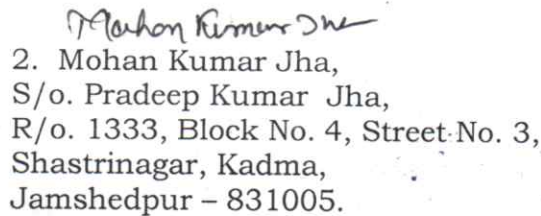 Mohan Kumar Jha
2. Mohan Kumar Jha,
S/o. Pradeep Kumar Jha,
R/o. 1333, Block No. 4, Street No. 3,
Shastrinagar, Kadma,
Jamshedpur – 831005.